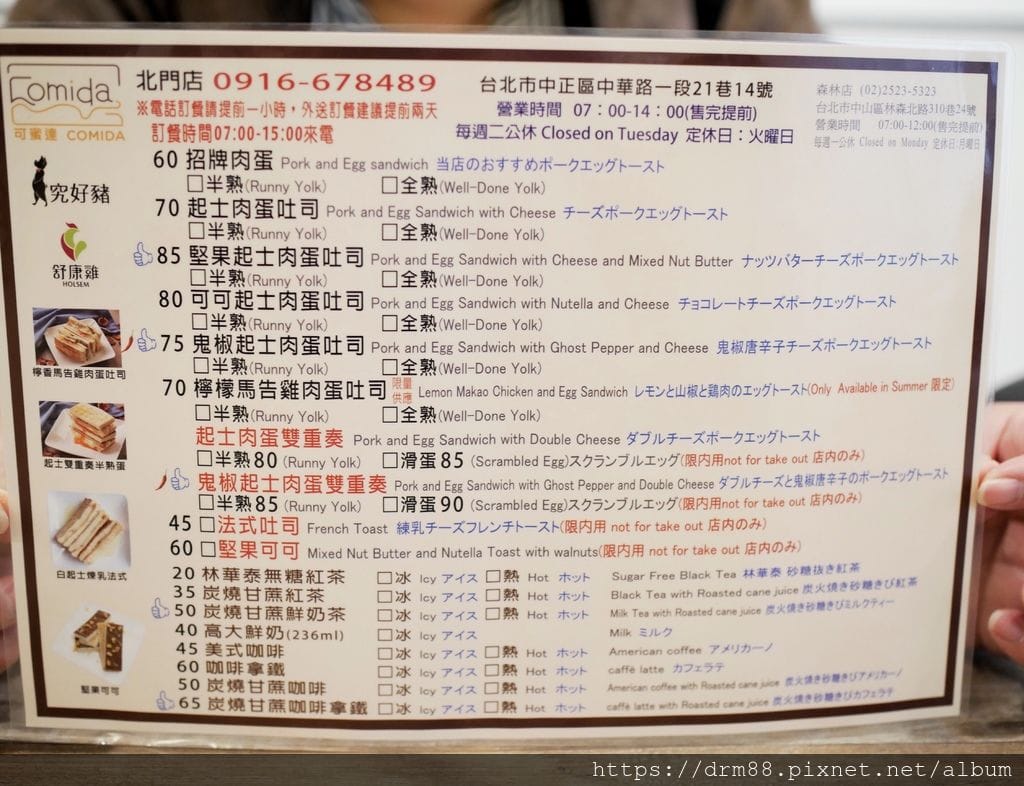 Comida
可蜜達 COMIDA
北門店 0916-678489
※電話訂餐請提前一小時，外送訂餐建議提前兩天
訂餐時間07:00-15:00來電
台北市中正區中華路一段21巷14號
營業時間 07：00-14：00(售完提前)
每週二公休 Closed on Tuesday 定休日：火曜日
森林店 (02)2523-5323
台北市中山區林森北路310巷24號
營業時間 07:00-12:00(售完提前)
每週一公休 Closed on Monday 定休日:月曜日
究好豬
舒康雞
HOLSEM
檸香馬告雞肉蛋吐司
起士雙重奏半熟蛋
白起士煉乳法式
堅果可可
60 招牌肉蛋 Pork and Egg sandwich 当店のおすすめポークエッグトースト
□半熟(Runny Yolk) □全熟(Well-Done Yolk)
70 起士肉蛋吐司 Pork and Egg Sandwich with Cheese チーズポークエッグトースト
□半熟(Runny Yolk) □全熟(Well-Done Yolk)
85 堅果起士肉蛋吐司 Pork and Egg Sandwich with Cheese and Mixed Nut Butter ナッツバターチーズポークエッグトースト
□半熟(Runny Yolk) □全熟(Well-Done Yolk)
80 可可起士肉蛋吐司 Pork and Egg Sandwich with Nutella and Cheese チョコレートチーズポークエッグトースト
□半熟(Runny Yolk) □全熟(Well-Done Yolk)
75 鬼椒起士肉蛋吐司 Pork and Egg Sandwich with Ghost Pepper and Cheese 鬼椒唐辛子チーズポークエッグトースト
□半熟(Runny Yolk) □全熟(Well-Done Yolk)
70 檸檬馬告雞肉蛋吐司 限量供應 Lemon Makao Chicken and Egg Sandwich レモンと山椒と鶏肉のエッグトースト(Only Available in Summer 限定)
□半熟(Runny Yolk) □全熟(Well-Done Yolk)
起士肉蛋雙重奏 Pork and Egg Sandwich with Double Cheese ダブルチーズポークエッグトースト
□半熟80 (Runny Yolk) □滑蛋85 (Scrambled Egg)スクランブルエッグ(限內用not for take out 店内のみ)
鬼椒起士肉蛋雙重奏 Pork and Egg Sandwich with Ghost Pepper and Double Cheese ダブルチーズと鬼椒唐辛子のポークエッグトースト
□半熟85 (Runny Yolk) □滑蛋90 (Scrambled Egg)スクランブルエッグ(限内用not for take out 店内のみ)
45 □法式吐司 French Toast 練乳チーズフレンチトースト(限內用 not for take out 店内のみ)
60 □堅果可可 Mixed Nut Butter and Nutella Toast with walnuts(限內用 not for take out 店内のみ)
20 林華泰無糖紅茶 □冰 Icy アイス □熱 Hot ホット Sugar Free Black Tea 林華泰 砂糖抜き紅茶
35 炭燒甘蔗紅茶 □冰 Icy アイス □熱 Hot ホット Black Tea with Roasted cane juice 炭火焼き砂糖きび紅茶
50 炭燒甘蔗鮮奶茶 □冰 Icy アイス □熱 Hot ホット Milk Tea with Roasted cane juice 炭火焼き砂糖きびミルクティー
40 高大鮮奶(236ml) □冰 Icy アイス Milk ミルク
45 美式咖啡 □冰 Icy アイス □熱 Hot ホット American coffee アメリカーノ
60 咖啡拿鐵 □冰 Icy アイス □熱 Hot ホット caffè latte カフェラテ
50 炭燒甘蔗咖啡 □冰 Icy アイス □熱 Hot ホット American coffee with Roasted cane juice 炭火焼き砂糖きびアメリカーノ
65 炭燒甘蔗咖啡拿鐵 □冰 Icy アイス □熱 Hot ホット caffè latte with Roasted cane juice 炭火焼き砂糖きびカフェラテ
https://drm88.pixnet.net/album